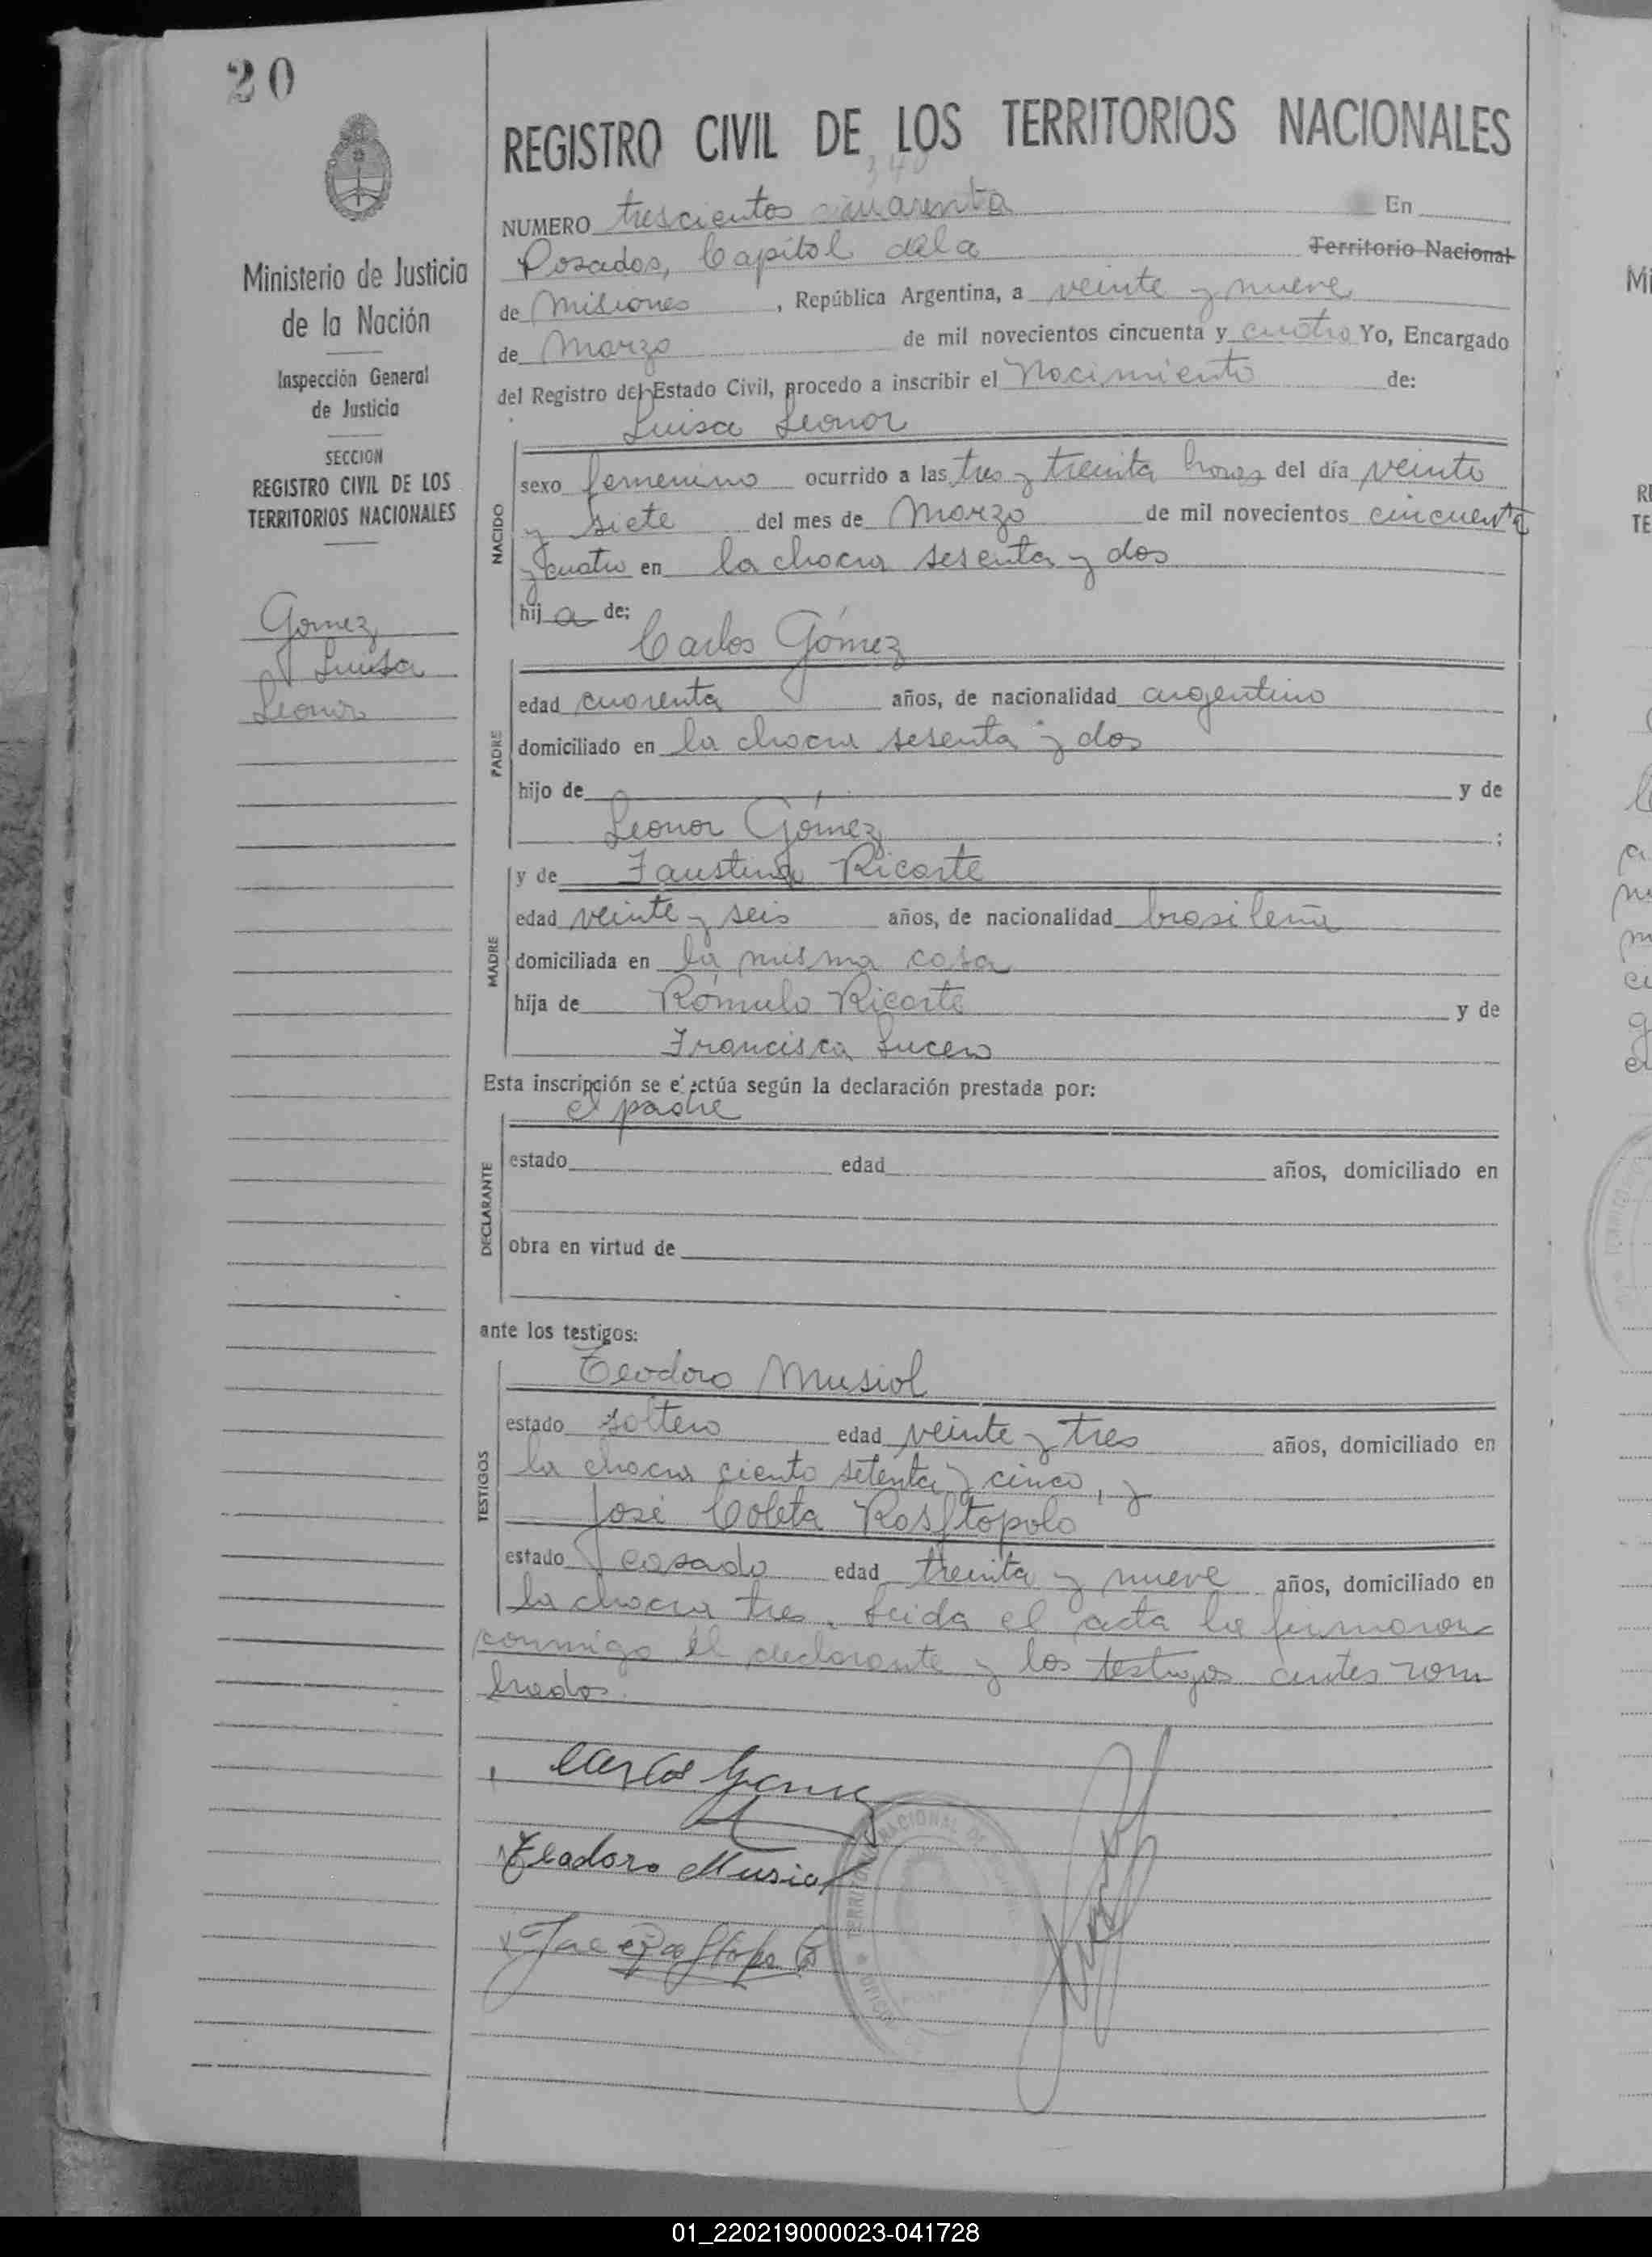 20
REGISTRO CIVIL DE LOS TERRITORIOS NACIONALES
340
NUMERO trescientos cuarenta En
Posadas, Capital de la Territorio Nacional
de Misiones, República Argentina, a veinte y nueve
de Marzo de mil novecientos cincuenta y cuatro Yo, Encargado
del Registro del Estado Civil, procedo a inscribir el Nacimiento de:
Luisa Leonor
sexo femenino ocurrido a las tres y treinta horas del día veinte
y siete del mes de Marzo de mil novecientos cincuenta
y cuatro en la chacra sesenta y dos
hij a de:
NACIDO
Carlos Gómez
edad cuarenta años, de nacionalidad argentino
domiciliado en la chacra sesenta y dos
hijo de y de
Leonor Gómez ;
PADRE
y de Faustina Ricarte
edad veinte y seis años, de nacionalidad brasileña
domiciliada en la misma casa
hija de Rómulo Ricarte y de
Francisca Lucero
MADRE
Esta inscripción se efectúa según la declaración prestada por:
el padre
estado edad años, domiciliado en
obra en virtud de
DECLARANTE
ante los testigos:
Teodoro Musiol
estado soltero edad veinte y tres años, domiciliado en
la chacra ciento setenta y cinco, y
José Coleta Rosftopolo
estado casado edad treinta y nueve años, domiciliado en
la chacra tres. Leida el acta la firmaron
conmigo el declarante y los testigos antes nom
brados.
TESTIGOS
Carlos Gomez
Teodoro Musiol
Ministerio de Justicia
de la Nación
Inspección General
de Justicia
SECCION
REGISTRO CIVIL DE LOS
TERRITORIOS NACIONALES
Gomez
Luisa
Leonor
NACIONAL DE
01_220219000023-041728